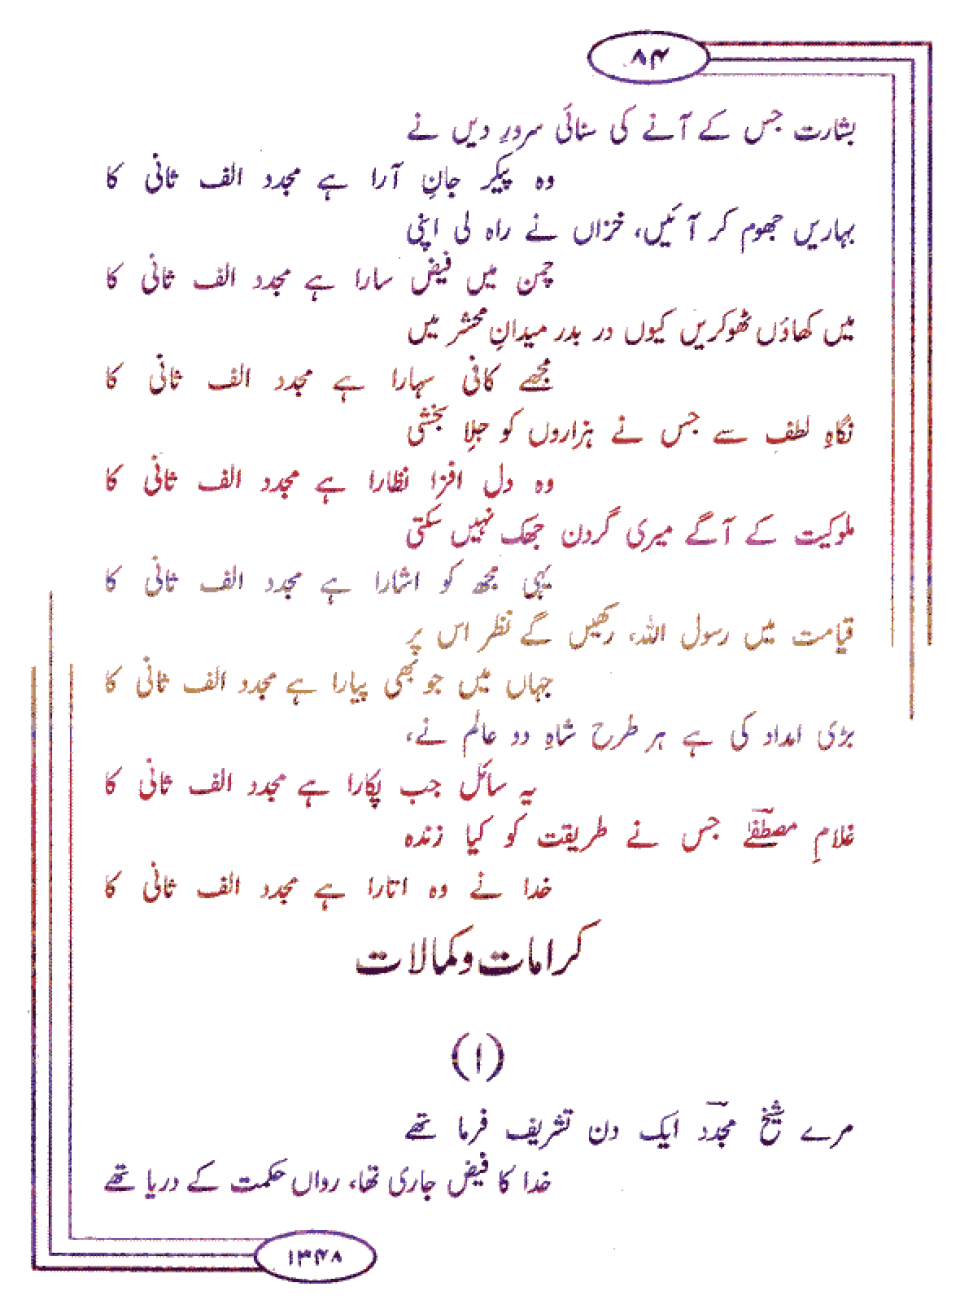 ۸۴
بشارت جس کے آنے کی سنائی سرورِ دیں نے
وہ پیکر جانِ آرا ہے مجدد الف ثانی کا
بہاریں جھوم کر آئیں، خزاں نے راہ لی اپنی
چمن میں فیض سارا ہے مجدد الف ثانی کا
میں کھاؤں ٹھوکریں کیوں در بدر میدانِ محشر میں
مجھے کافی سہارا ہے مجدد الف ثانی کا
نگاہِ لطف سے جس نے ہزاروں کو جلا بخشی
وہ دل افزا نظارا ہے مجدد الف ثانی کا
ملوکیت کے آگے میری گردن جھک نہیں سکتی
یہی مجھ کو اشارا ہے مجدد الف ثانی کا
قیامت میں رسول اللہ، رکھیں گے نظر اس پر
جہاں میں جو بھی پیارا ہے مجدد الف ثانی کا
بڑی امداد کی ہے ہر طرح شاہِ دو عالم نے،
یہ سائل جب پکارا ہے مجدد الف ثانی کا
غلامِ مصطفےٰ جس نے طریقت کو کیا زندہ
خدا نے وہ اتارا ہے مجدد الف ثانی کا
کرامات و کمالات
(۱)
مرے شیخ مجددؒ ایک دن تشریف فرما تھے
خدا کا فیض جاری تھا، رواں حکمت کے دریا تھے
۱۳۴۸